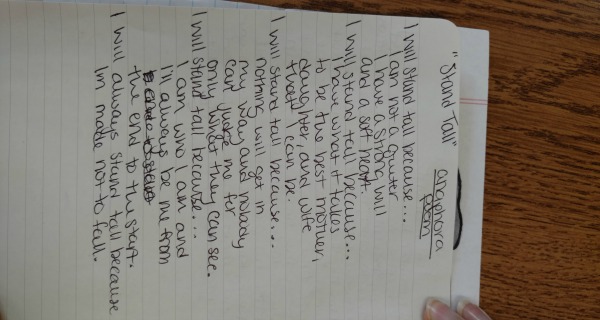 "Stand Tall"
anaphora
poem
I will stand tall because...
I am not a quiter
I have a strong will
and a soft heart
I will stand tall because...
I have what it takes
to be the best mother,
daughter, and wife
that I can be.
I will stand tall because...
nothing will get in
my way and nobody
can judge me for
only what they can see.
I will stand tall because...
I am who I am and
I'll always be me from
the end to the start.
I will always stand tall because
Im made not to fall.